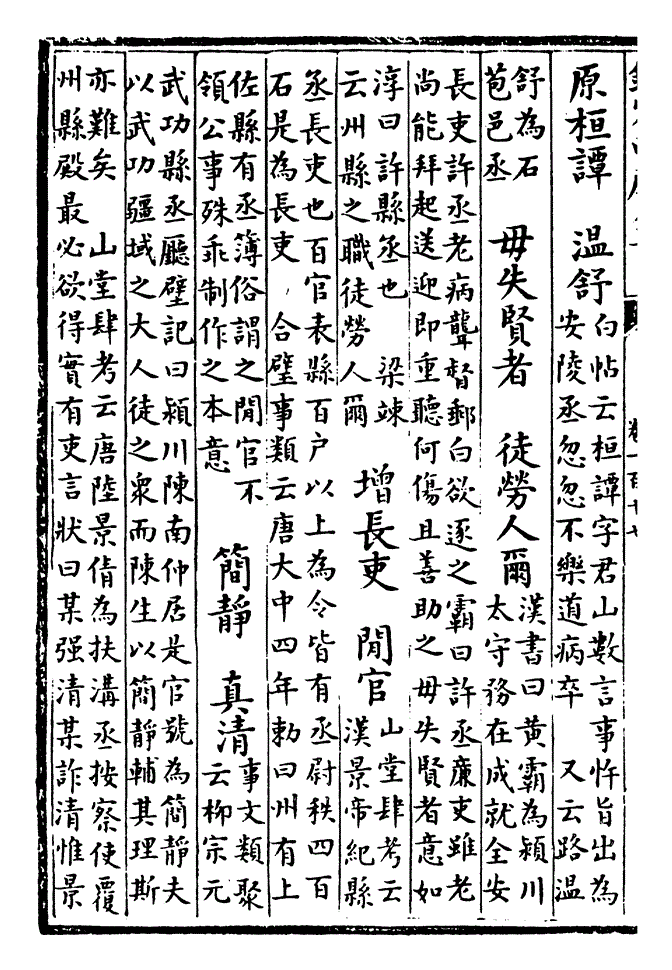 原桓譚 溫舒
白帖云桓譚字君山數言事忤旨出為
安陵丞忽忽不樂道病卒 又云路溫
舒為石
苞邑丞
毋失賢者 徒勞人爾
漢書曰黃霸為潁川
太守務在成就全安
長吏許丞老病聾督郵白欲逐之霸曰許丞廉吏雖老
尚能拜起送迎即重聽何傷且善助之毋失賢者意如
淳曰許縣丞也 梁竦
云州縣之職徒勞人爾
增長吏 閒官
山堂肆考云
漢景帝紀縣
丞長吏也百官表縣百户以上為令皆有丞尉秩四百
石是為長吏 合璧事類云唐大中四年勅曰州有上
佐縣有丞簿俗謂之閒官不
領公事殊乖制作之本意
簡靜 真清
事文類聚
云柳宗元
武功縣丞廳壁記曰潁川陳南仲居是官號為簡靜夫
以武功疆域之大人徒之衆而陳生以簡靜輔其理斯
亦難矣 山堂肆考云唐陸景倩為扶溝丞按察使覆
州縣殿最必欲得實有吏言狀曰某强清某詐清惟景